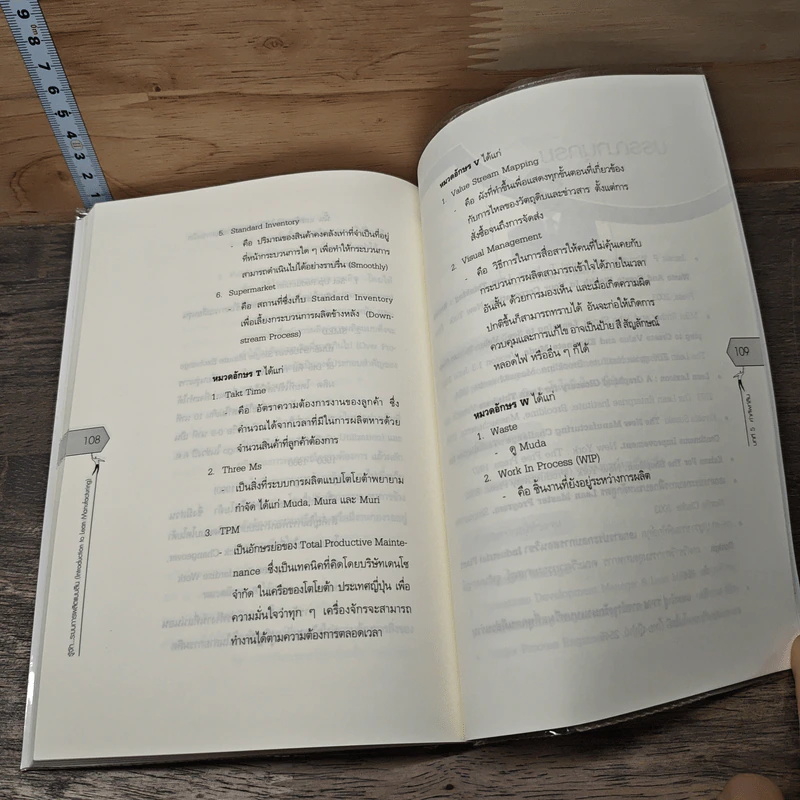 5. Standard Inventory
- คือ ปริมาณของสินค้าคงคลังเท่าที่จำเป็นที่อยู่
ที่หน้ากระบวนการใด ๆ เพื่อทำให้กระบวนการ
สามารถดำเนินไปได้อย่างราบรื่น (Smoothly)
6. Supermarket
- คือ สถานที่ซึ่งเก็บ Standard Inventory
เพื่อเลี้ยงกระบวนการผลิตข้างหลัง (Down-
stream Process)
หมวดอักษร T ได้แก่
1. Takt Time
- คือ อัตราความต้องการงานของลูกค้า ซึ่ง
คำนวณได้จากเวลาที่มีในการผลิตหารด้วย
จำนวนสินค้าที่ลูกค้าต้องการ
2. Three Ms
- เป็นสิ่งที่ระบบการผลิตแบบโตโยต้าพยายาม
กำจัด ได้แก่ Muda, Mura และ Muri
3. TPM
- เป็นอักษรย่อของ Total Productive Mainte-
nance ซึ่งเป็นเทคนิคที่คิดโดยบริษัทเดนโซ
จำกัด ในเครือของโตโยต้า ประเทศญี่ปุ่น เพื่อ
ความมั่นใจว่าทุก ๆ เครื่องจักรจะสามารถ
ทำงานได้ตามความต้องการตลอดเวลา
108
รู้จัก...ระบบการผลิตแบบลีน (Introduction to Lean Manufacturing)
หมวดอักษร V ได้แก่
1. Value Stream Mapping
- คือ ผังที่ทำขึ้นเพื่อแสดงทุกขั้นตอนที่เกี่ยวข้อง
กับการไหลของวัตถุดิบและข่าวสาร ตั้งแต่การ
สั่งซื้อจนถึงการจัดส่ง
2. Visual Management
- คือ วิธีการในการสื่อสารให้คนที่ไม่คุ้นเคยกับ
กระบวนการผลิตสามารถเข้าใจได้ภายในเวลา
อันสั้น ด้วยการมองเห็น และเมื่อเกิดความผิด
ปกติขึ้นก็สามารถทราบได้ อันจะก่อให้เกิดการ
ควบคุมและการแก้ไข อาจเป็นป้าย สี สัญลักษณ์
หลอดไฟ หรืออื่น ๆ ก็ได้
หมวดอักษร W ได้แก่
1. Waste
- ดู Muda
2. Work In Process (WIP)
- คือ ชิ้นงานที่ยังอยู่ระหว่างการผลิต
109
บทที่ 5 ภาษาลีน
9 8 7 6 5 4 3 2 1